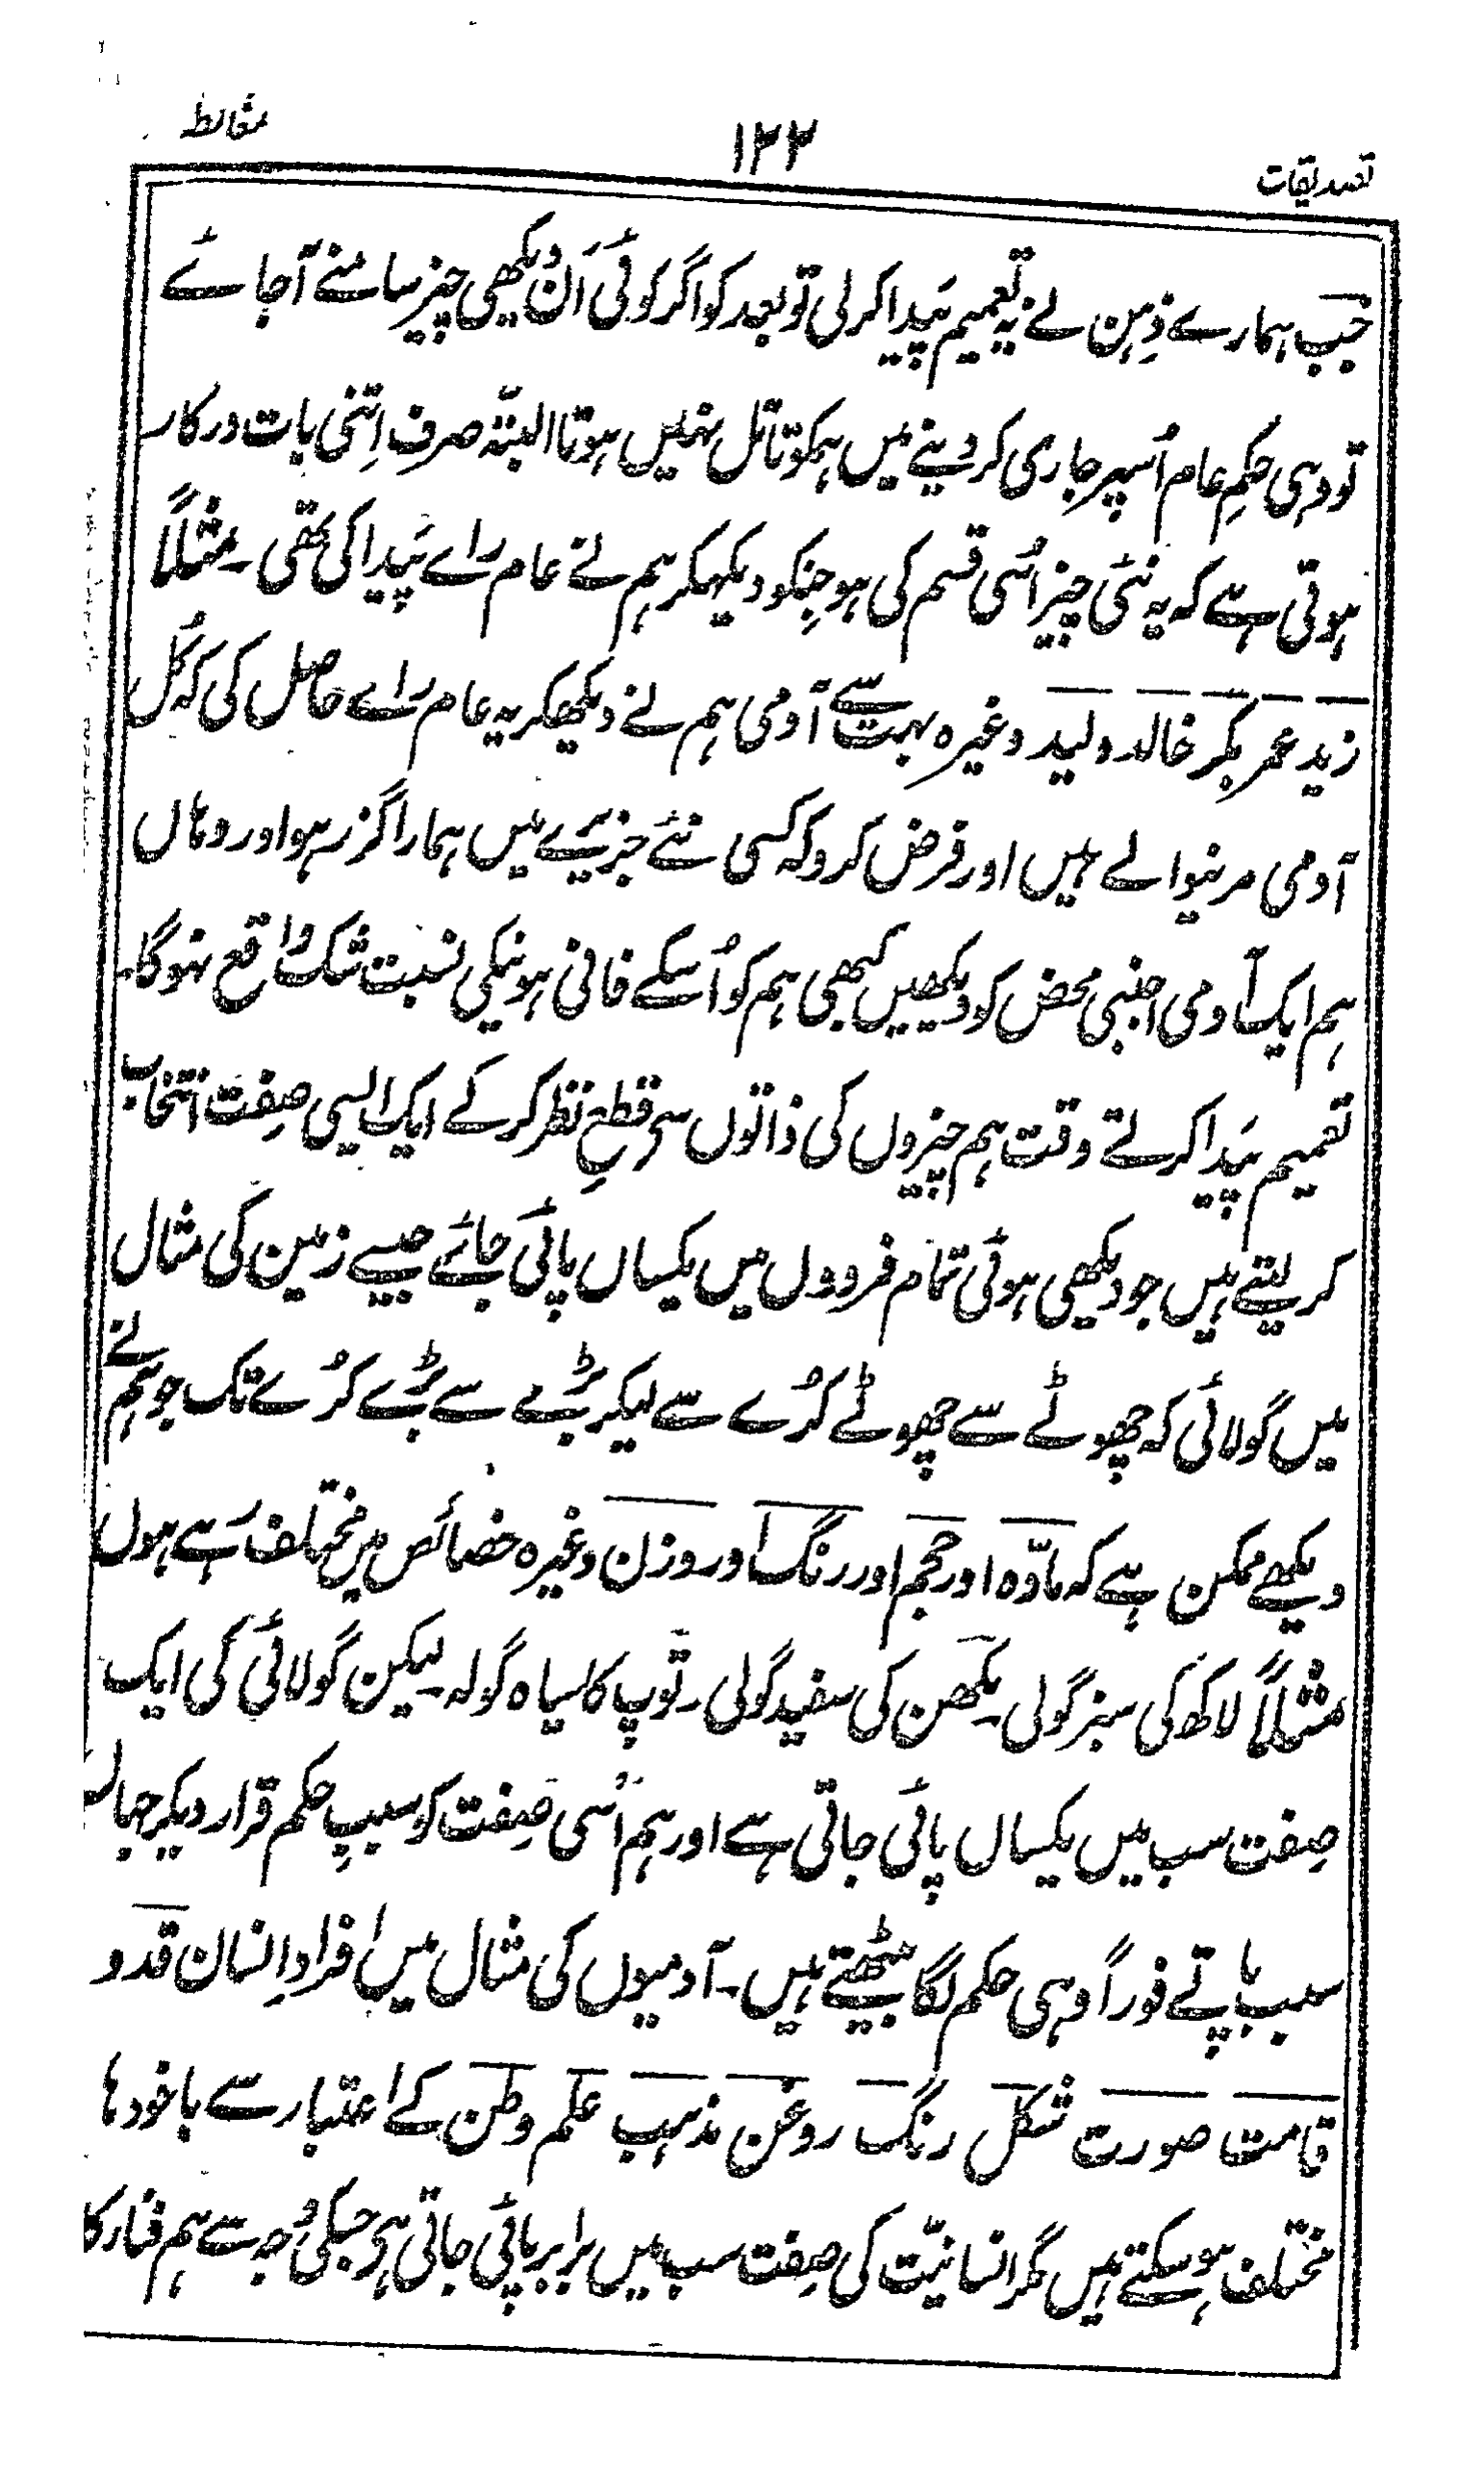 تصدیقات ۱۲۲ مغالطہ
جب ہمارے ذہن نے یہ تعمیم پیدا کرلی تو بعد کو اگر کوئی اَن دیکھی چیز سامنے آجائے
تو وہی حکمِ عام اُسپر جاری کر دینے میں ہمکو تامّل نہیں ہوتا البتّہ صرف اِتنی بات درکار
ہوتی ہے کہ یہ نئی چیز اُسی قسم کی ہو جنکو دیکھکر ہم نے عام راے پیدا کی تھی ۔ مثلاً
زید عمر بکر خالد ولید وغیرہ بہت سے آدمی ہم نے دیکھکر یہ عام راے حاصل کی کہ کُل
آدمی مرنیوالے ہیں اور فرض کرو کہ کسی نئے جزیرے میں ہمارا گزر ہو اور وہاں
ہم ایک آدمی اجنبی محض کو دیکھیں کبھی ہم کو اُسکے فانی ہونیکی نسبت شک واقع نہوگا۔
تعمیم پیدا کرتے وقت ہم چیزوں کی ذاتوں سے قطعِ نظر کرکے ایک ایسی صِفت انتخاب
کر لیتے ہیں جو دیکھی ہوئی تمام فردوں میں یکساں پائی جائے جیسے زمین کی مثال
میں گولائی کہ چھوٹے سے چھوٹے کُرے سے لیکر بڑے سے بڑے کُرے تک جو ہم نے
دیکھے ممکن ہے کہ مادّہ اور حجم اور رنگ اور وزن وغیرہ خصائص میں مختلف رہے ہوں
مثلاً لاکھ کی سبز گولی ۔ مکھن کی سفید گولی ۔ توپ کا سیاہ گولہ ۔ لیکن گولائی کی ایک
صِفت سب میں یکساں پائی جاتی ہے اور ہم اُسی صِفت کو سببِ حکم قرار دیکر جہاں
سبب پاتے فوراً وہی حکم لگا بیٹھتے ہیں ۔ آدمیوں کی مثال میں افرادِ انسان قد و
قامت صورت شکل رنگ روغن مذہب علم وطن کے اعتبار سے باخودہا
مختلف ہو سکتے ہیں مگر انسانیّت کی صِفت سب میں برابر پائی جاتی ہی جسکی وجہ سے ہم فنا کا